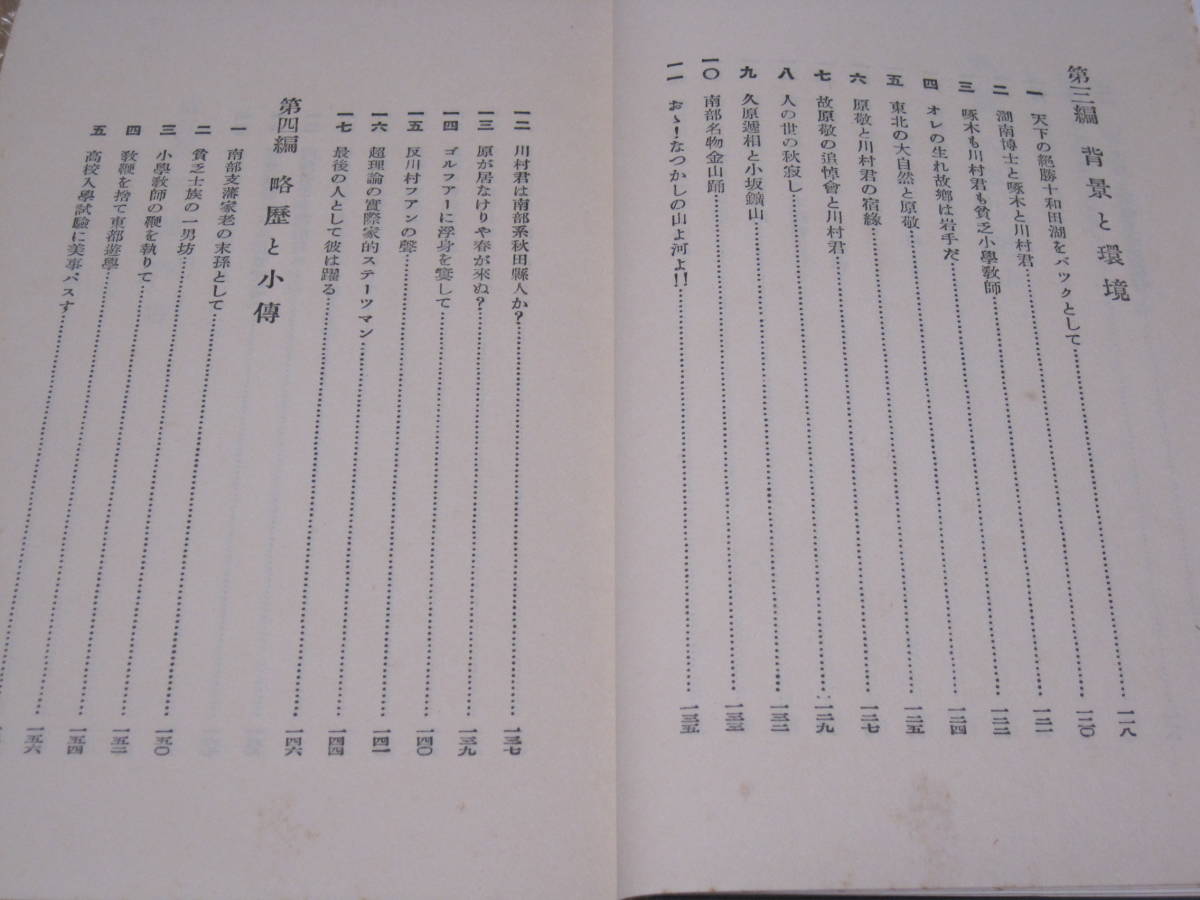 第三編　背景と環境
一　天下の絶勝十和田湖をバツクとして……一一八
二　湖南博士と啄木と川村君……一二〇
三　啄木も川村君も貧乏小學敎師……一二一
四　オレの生れ故鄕は岩手だ……一二二
五　東北の大自然と原敬……一二四
六　原敬と川村君の宿緣……一二五
七　故原敬の追悼會と川村君……一二七
八　人の世の秋寂し……一二九
九　久原遞相と小坂鑛山……一三二
一〇　南部名物金山踊……一三三
一一　おゝ！なつかしの山よ河よ!!……一三五
一二　川村君は南部系秋田縣人か？……一三七
一三　原が居なけりや春が來ぬ？……一三九
一四　ゴルフアーに浮身を窶して……一四〇
一五　反川村フアンの聲……一四一
一六　超理論の實際家的ステーツマン……一四四
一七　最後の人として彼は躍る……一四六
第四編　略歷と小傳
一　南部支藩家老の末孫として……一五〇
二　貧乏士族の一男坊……一五二
三　小學敎師の鞭を執りて……一五四
四　敎鞭を捨て東都遊學……一五六
五　高校入學試驗に美事パスす……